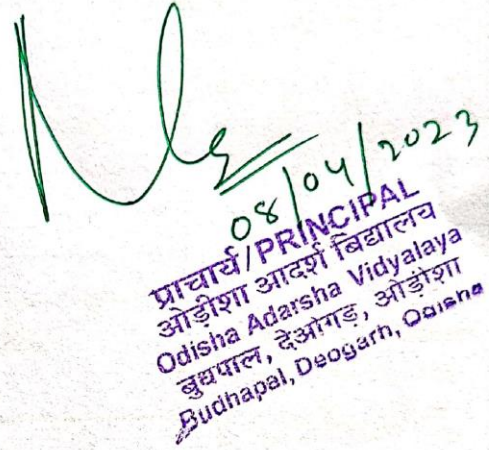 08/04/2023
प्राचार्य/PRINCIPAL
ओड़ीशा आदर्श बिद्यालय
Odisha Adarsha Vidyalaya
बुधपाल, देओगड़, ओड़ीशा
Budhapal, Deogarh, Odisha